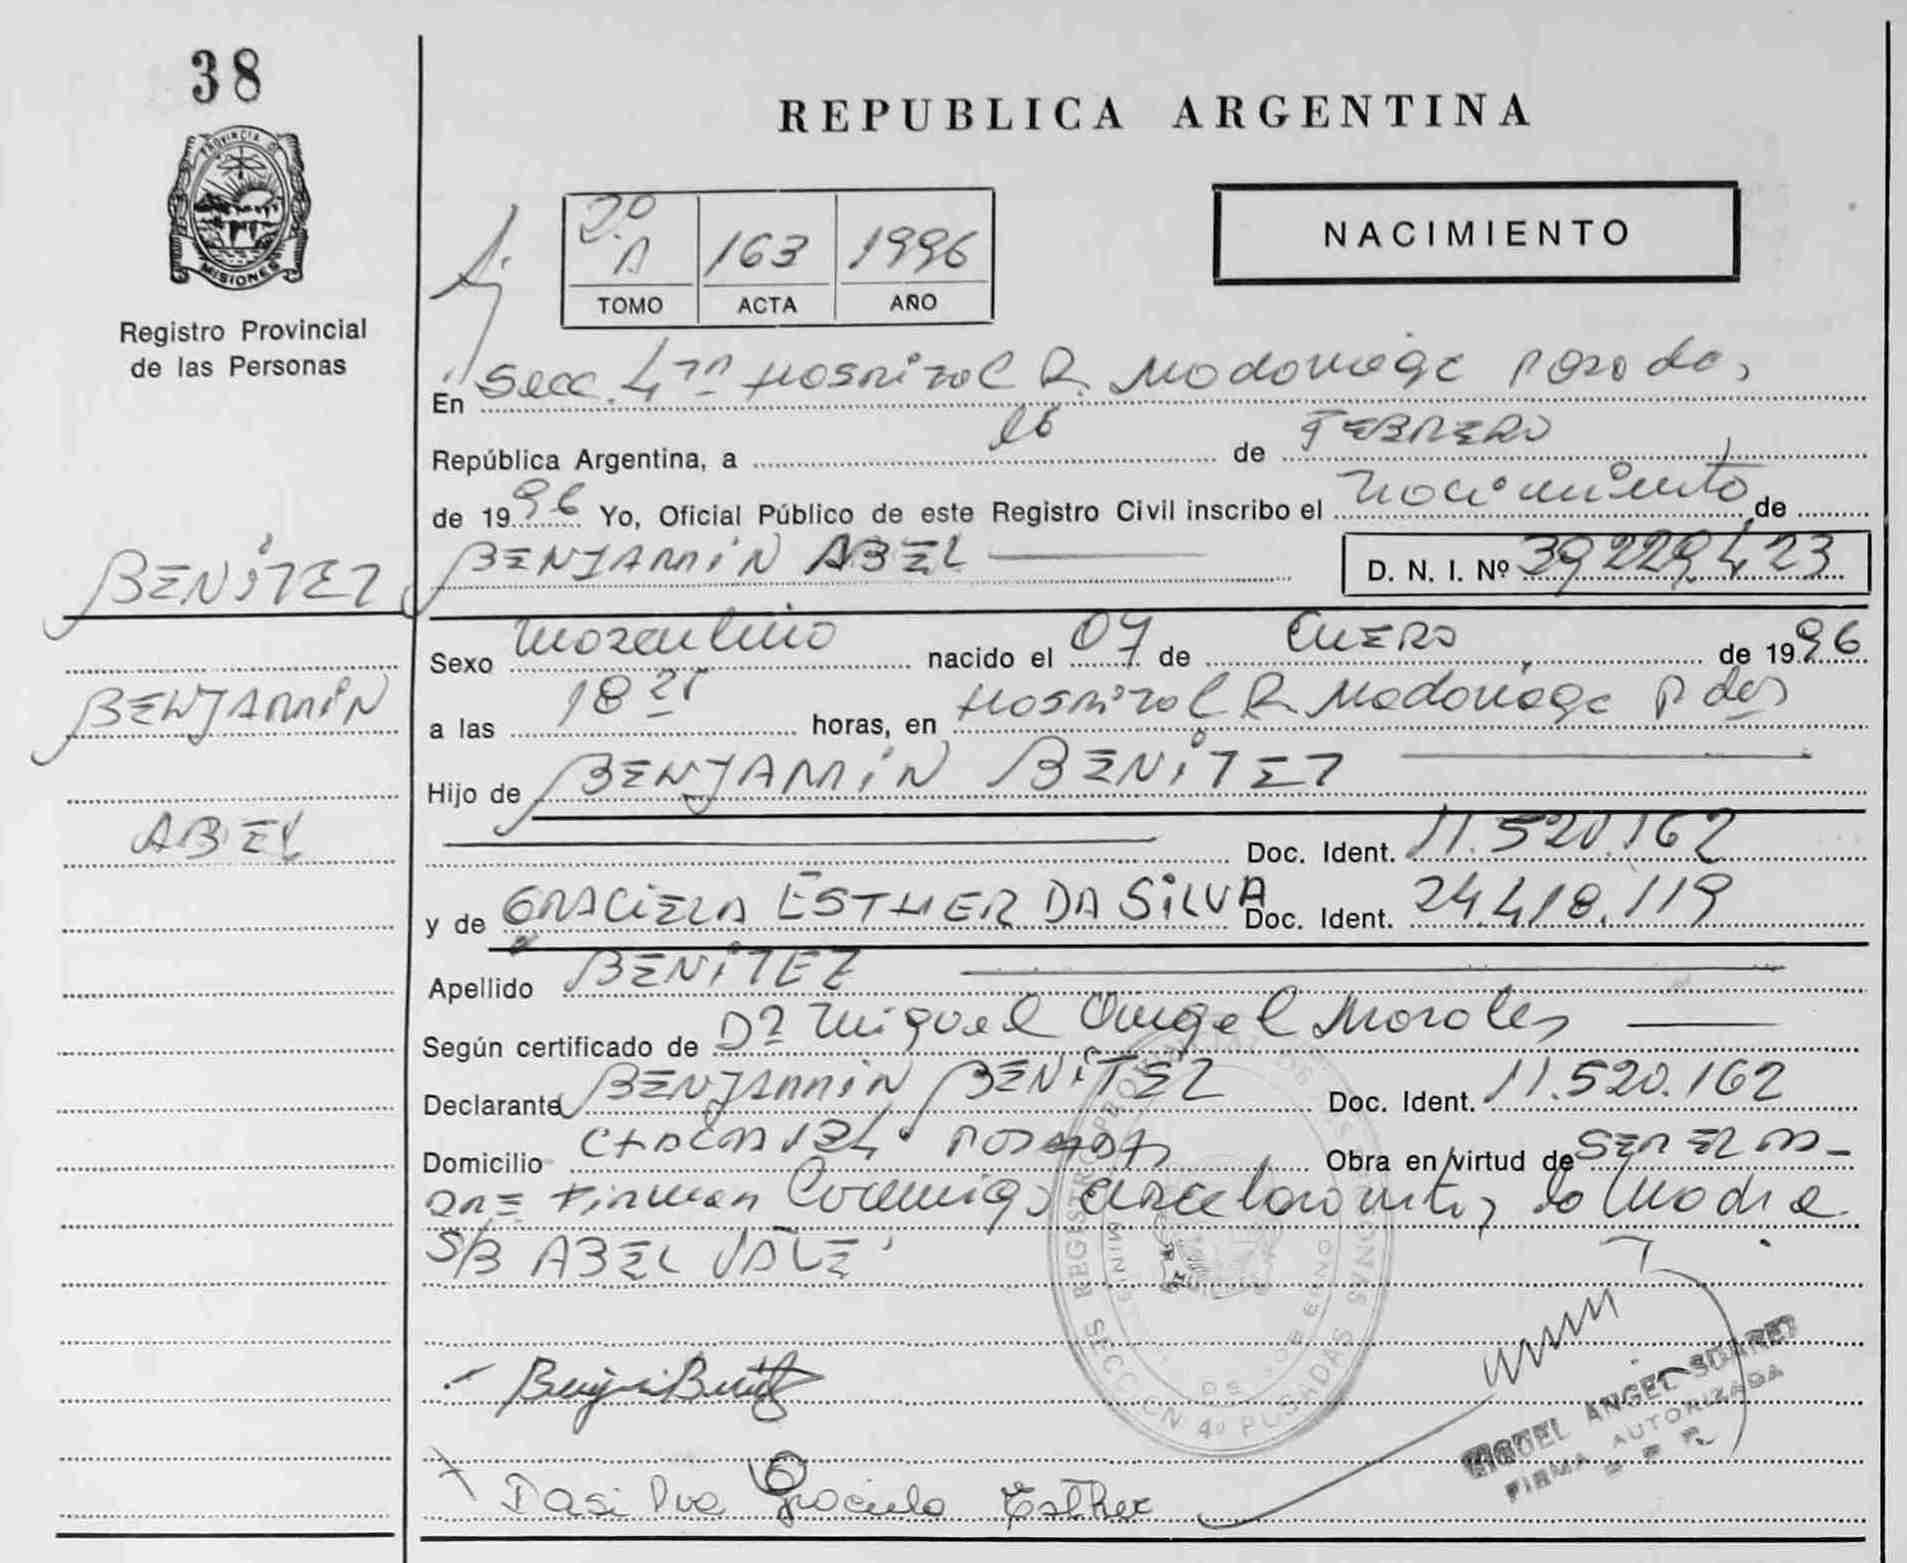 38
REPUBLICA ARGENTINA
PROVINCIA DE
MISIONES
Registro Provincial
de las Personas
2º A 163 1996
TOMO ACTA AÑO
NACIMIENTO
En Secc. 4ta Hospital R. Madariaga Posadas
República Argentina, a 16 de FEBRERO
de 1996 Yo, Oficial Público de este Registro Civil inscribo el nacimiento de
BENJAMIN ABEL D. N. I. Nº 39.229.423
BENITEZ
BENJAMIN
ABEL
Sexo masculino nacido el 07 de ENERO de 1996
a las 18 horas, en Hospital R. Madariaga Pdas
Hijo de BENJAMIN BENITEZ
Doc. Ident. 11.520.162
y de GRACIELA ESTHER DA SILVA Doc. Ident. 24.418.119
Apellido BENITEZ
Según certificado de Dr Miguel Angel Morales
Declarante BENJAMIN BENITEZ Doc. Ident. 11.520.162
Domicilio CHACRA 134 POSADAS Obra en virtud de SER EL PA-
DRE Firman Conmigo declarante, la Madre
S/B ABEL VALE
REGISTRO PROVINCIAL DE LAS PERSONAS
SECCION 4º POSADAS
Benjamin Benitez
Da Silva Graciela Esther
MIGUEL ANGEL SUAREZ
FIRMA AUTORIZADA